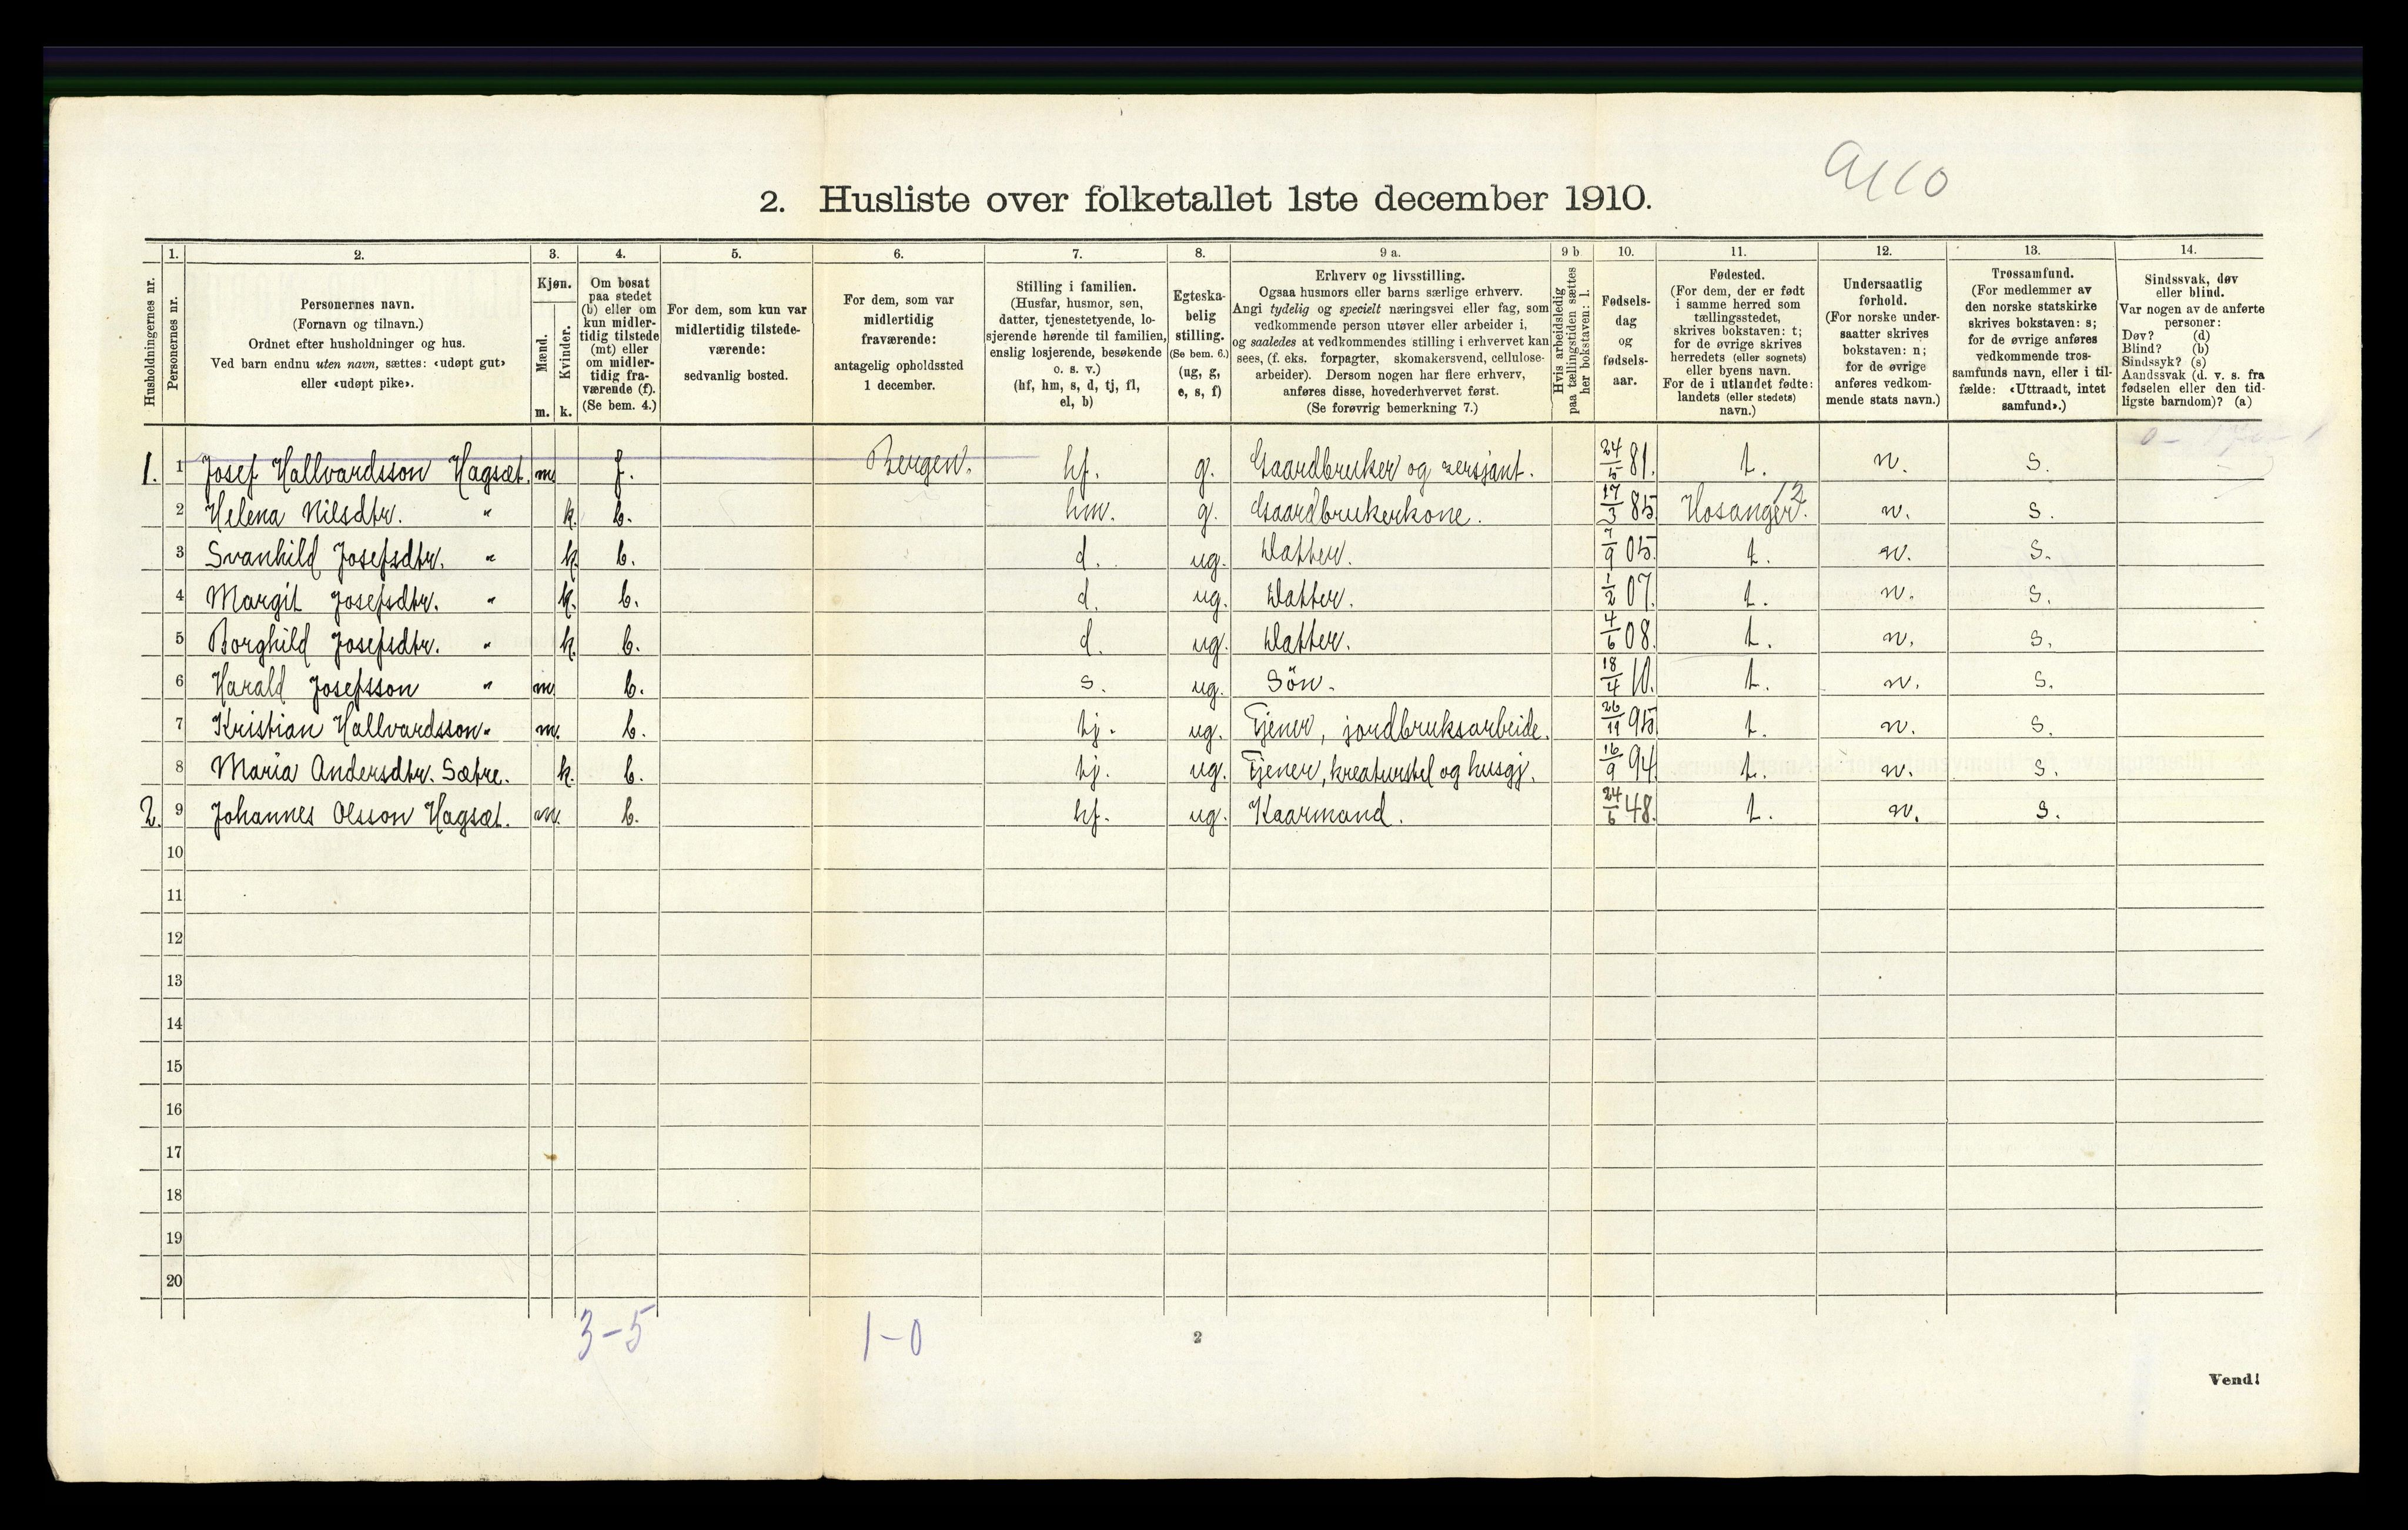 2. Husliste over folketallet 1ste december 1910.
Husholdningernes nr.
1. Personernes nr.
2. Personernes navn. (Fornavn og tilnavn.) Ordnet efter husholdninger og hus. Ved barn endnu uten navn, sættes: «udøpt gut» eller «udøpt pike».
3. Kjøn. Mænd. m. Kvinder. k.
4. Om bosat paa stedet (b) eller om kun midlertidig tilstede (mt) eller om midlertidig fraværende (f). (Se bem. 4.)
5. For dem, som kun var midlertidig tilstedeværende: sedvanlig bosted.
6. For dem, som var midlertidig fraværende: antagelig opholdssted 1 december.
7. Stilling i familien. (Husfar, husmor, søn, datter, tjenestetyende, losjerende hørende til familien, enslig losjerende, besøkende o. s. v.) (hf, hm, s, d, tj, fl, el, b)
8. Egteskabelig stilling. (Se bem. 6.) (ug, g, e, s, f)
9 a. Erhverv og livsstilling. Ogsaa husmors eller barns særlige erhverv. Angi tydelig og specielt næringsvei eller fag, som vedkommende person utøver eller arbeider i, og saaledes at vedkommendes stilling i erhvervet kan sees, (f. eks. forpagter, skomakersvend, cellulosearbeider). Dersom nogen har flere erhverv, anføres disse, hovederhvervet først. (Se forøvrig bemerkning 7.)
9 b Hvis arbeidsledig paa tællingstiden sættes her bokstaven: l.
10. Fødselsdag og fødselsaar.
11. Fødested. (For dem, der er født i samme herred som tællingsstedet, skrives bokstaven: t; for de øvrige skrives herredets (eller sognets) eller byens navn. For de i utlandet fødte: landets (eller stedets) navn.)
12. Undersaatlig forhold. (For norske undersaatter skrives bokstaven: n; for de øvrige anføres vedkommende stats navn.)
13. Trossamfund. (For medlemmer av den norske statskirke skrives bokstaven: s; for de øvrige anføres vedkommende trossamfunds navn, eller i tilfælde: «Uttraadt, intet samfund».)
14. Sindssvak, døv eller blind. Var nogen av de anførte personer: Døv? (d) Blind? (b) Sindssyk? (s) Aandssvak (d. v. s. fra fødselen eller den tidligste barndom)? (a)
1. 1 Josef Hallvardsson Hagsæt. m. f. Bergen. hf. g. Gaardbruker og sersjant. 24/5 81. t. n. s.
2 Helena Nilsdtr. " k. b. hm. g. Gaardbrukerkone. 17/3 85 Hosanger. 12 n. s.
3 Svanhild Josefsdtr. " k. b. d. ug. Datter. 7/9 05. t. n. s.
4 Margit Josefsdtr. " k. b. d. ug. Datter. 1/2 07. t. n. s.
5 Borghild Josefsdtr. " k. b. d. ug. Datter. 4/6 08. t. n. s.
6 Harald Josefsson " m. b. s. ug. Sön. 18/4 10. t. n. s.
7 Kristian Hallvardsson " m. b. tj. ug. Tjener, jordbruksarbeide. 26/11 95. t. n. s.
8 Maria Andersdtr. Sætre. k. b. tj. ug. Tjener, kreaturstel og husgj. 16/9 94. t. n. s.
2. 9 Johannes Olsson Hagsæt. m. b. hf. ug. Kaarmand. 24/6 48. t. n. s.
10
11
12
13
14
15
16
17
18
19
20
3-5 1-0
2
Vend!